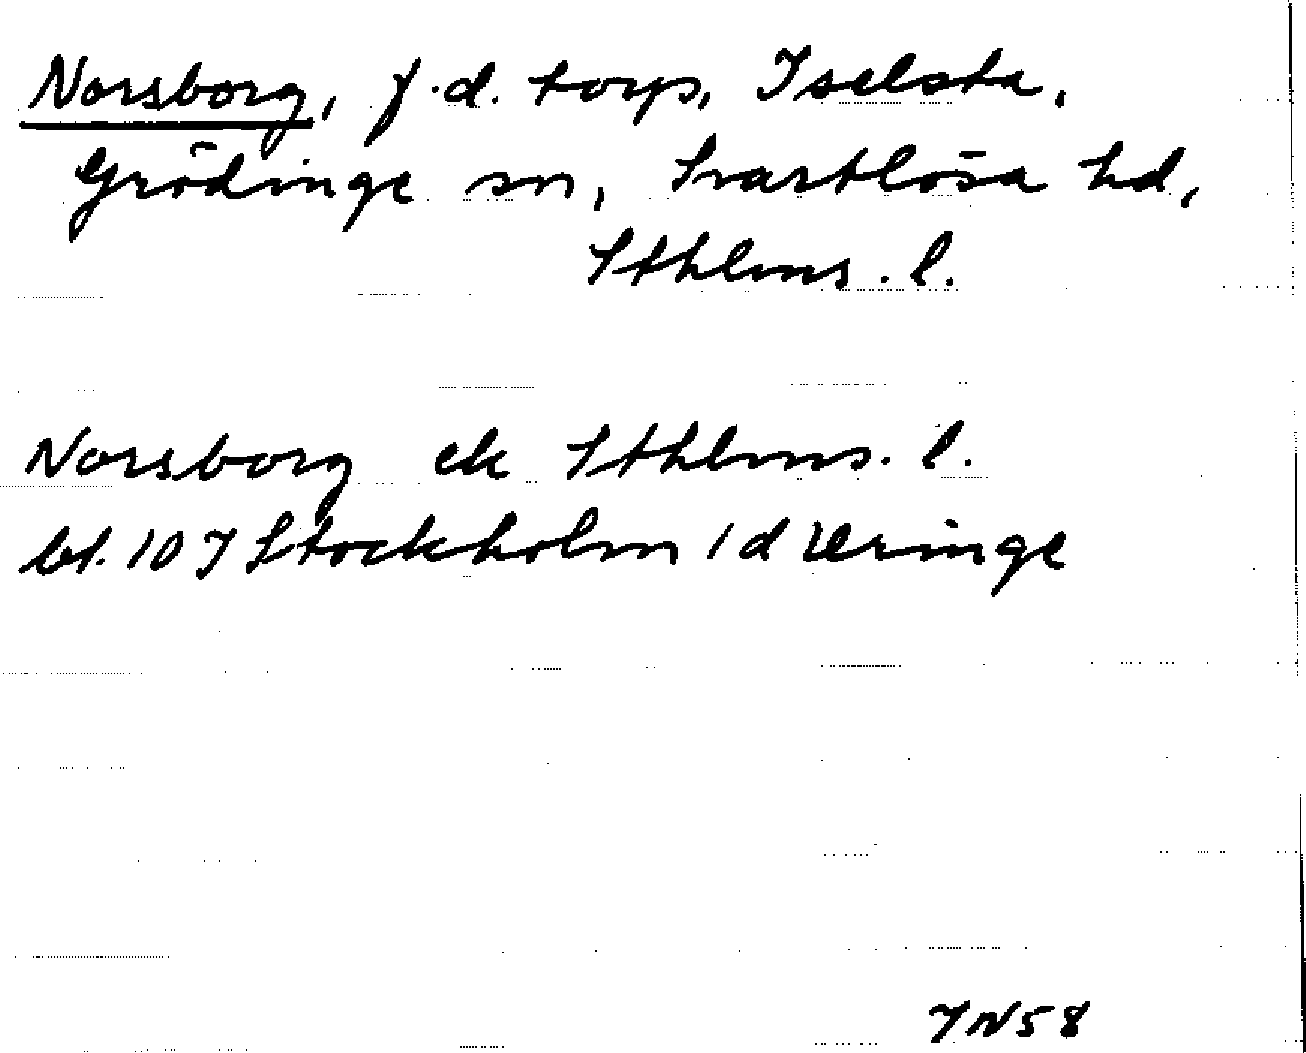 Norsborg, f.d. torp, Iselsta,
Grödinge sn, Svartlösa hd,
Sthlms. l.
Norsborg ek Sthlms. l.
bl. 10 I Stockholm 1 d Uringe
IN58